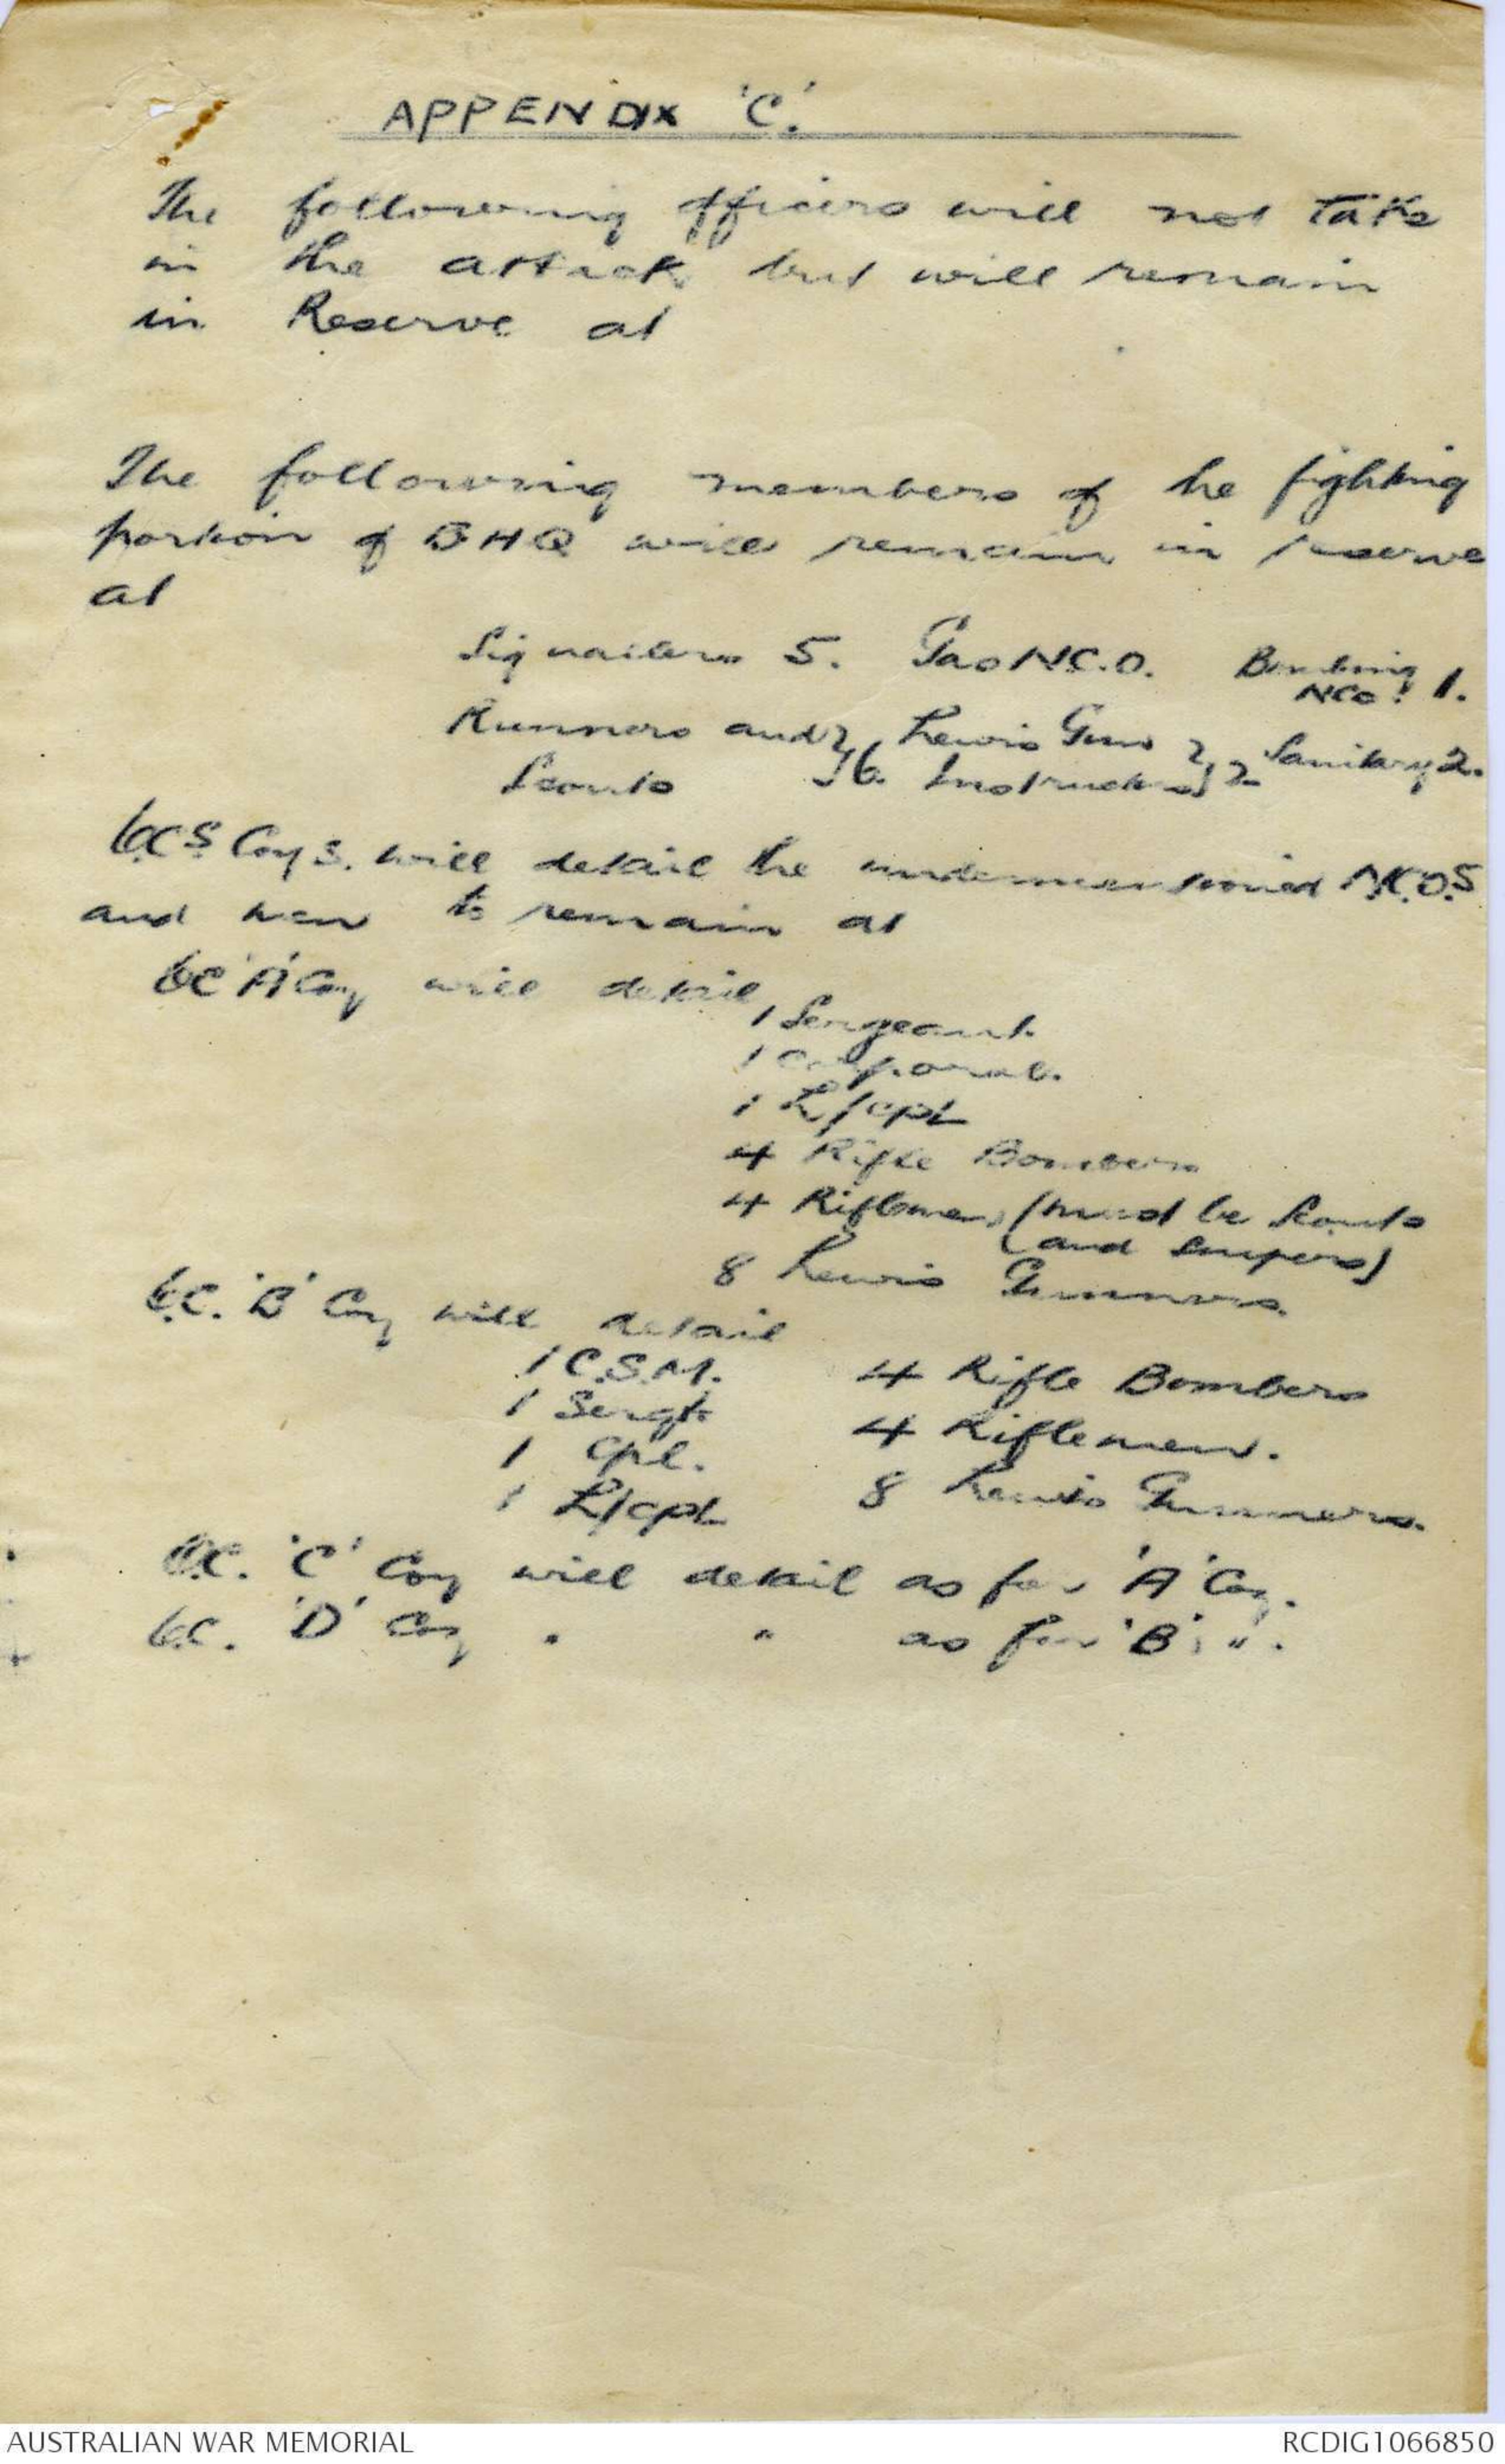 APPENDIX 'C'.
The following officers will not take
in the attack but will remain
in Reserve at
The following members of he fighting
portion of BHQ will remain in reserve
at
Signallers 5. Gas N.C.O. Bombing NCO! 1.
Runners and Lewis Guns Sanitary 2.
Scouts } 6. Instructors } 2
O.CS Coys. will detail the undermentioned N.C.O.S
and men to remain at
OC 'A' Coy will detail
1 Sergeant.
1 Corporal.
1 L/cpl
4 Rifle Bombers
4 Riflemen (must be Scouts
(and Snipers)
8 Lewis Gunners.
O.C. 'B' Coy will detail
1 C.S.M. 4 Rifle Bombers
1 Sergt. 4 Riflemen.
1 Cpl. 8 Lewis Gunners.
1 L/cpl
O.C. 'C' Coy will detail as for 'A' Coy.
O.C. 'D' Coy " " as for 'B' ".
AUSTRALIAN WAR MEMORIAL RCDIG1066850